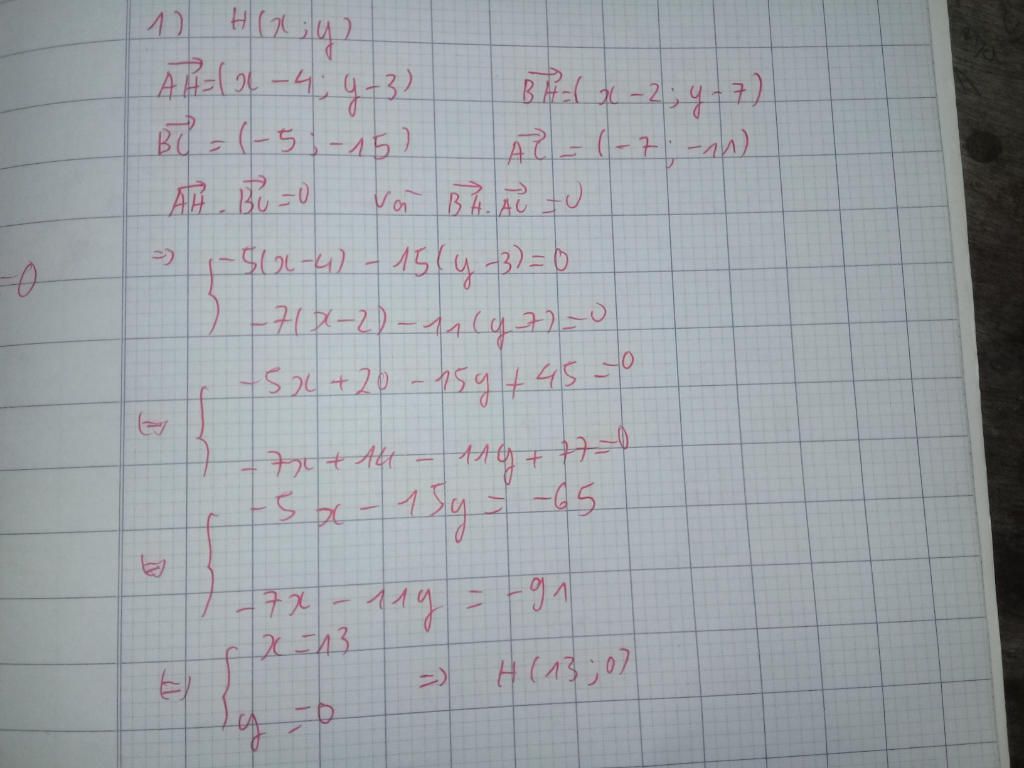 1) H(x;y)
AH→=(x-4; y-3) BH→=(x-2; y-7)
BC→ = (-5; -15) AC→ = (-7; -11)
AH→ . BC→ =0 và BH→. AC→ =0
=0
=> { -5(x-4) - 15(y-3)=0
-7(x-2) - 11(y-7)=0
<=> { -5x +20 - 15y + 45 =0
-7x +14 - 11y + 77=0
<=> { -5x - 15y = -65
-7x - 11y = -91
<=> { x=13
y =0 => H(13;0)